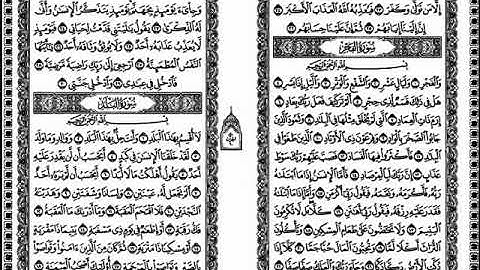 إِلَّا مَن تَوَلَّىٰ وَكَفَرَ ٢٣ فَيُعَذِّبُهُ ٱللَّهُ ٱلْعَذَابَ ٱلْأَكْبَرَ ٢٤
إِنَّ إِلَيْنَآ إِيَابَهُمْ ٢٥ ثُمَّ إِنَّ عَلَيْنَا حِسَابَهُم ٢٦
سُورَةُ الفَجْرِ
بِسْمِ ٱللَّهِ ٱلرَّحْمَٰنِ ٱلرَّحِيمِ
وَٱلْفَجْرِ ١ وَلَيَالٍ عَشْرٍ ٢ وَٱلشَّفْعِ وَٱلْوَتْرِ ٣ وَٱلَّيْلِ إِذَا يَسْرِ ٤
هَلْ فِى ذَٰلِكَ قَسَمٌ لِّذِى حِجْرٍ ٥ أَلَمْ تَرَ كَيْفَ فَعَلَ رَبُّكَ بِعَادٍ ٦
إِرَمَ ذَاتِ ٱلْعِمَادِ ٧ ٱلَّتِى لَمْ يُخْلَقْ مِثْلُهَا فِى ٱلْبِلَٰدِ ٨ وَثَمُودَ ٱلَّذِينَ
جَابُوا۟ ٱلصَّخْرَ بِٱلْوَادِ ٩ وَفِرْعَوْنَ ذِى ٱلْأَوْتَادِ ١٠ ٱلَّذِينَ طَغَوْا۟ فِى
ٱلْبِلَٰدِ ١١ فَأَكْثَرُوا۟ فِيهَا ٱلْفَسَادَ ١٢ فَصَبَّ عَلَيْهِمْ رَبُّكَ سَوْطَ
عَذَابٍ ١٣ إِنَّ رَبَّكَ لَبِٱلْمِرْصَادِ ١٤ فَأَمَّا ٱلْإِنسَٰنُ إِذَا مَا ٱبْتَلَىٰهُ
رَبُّهُۥ فَأَكْرَمَهُۥ وَنَعَّمَهُۥ فَيَقُولُ رَبِّىٓ أَكْرَمَنِ ١٥ وَأَمَّآ إِذَا مَا ٱبْتَلَىٰهُ
فَقَدَرَ عَلَيْهِ رِزْقَهُۥ فَيَقُولُ رَبِّىٓ أَهَٰنَنِ ١٦ كَلَّا بَل لَّا تُكْرِمُونَ
ٱلْيَتِيمَ ١٧ وَلَا تَحَٰٓضُّونَ عَلَىٰ طَعَامِ ٱلْمِسْكِينِ ١٨ وَتَأْكُلُونَ
ٱلتُّرَاثَ أَكْلًا لَّمًّا ١٩ وَتُحِبُّونَ ٱلْمَالَ حُبًّا جَمًّا ٢٠ كَلَّآ إِذَا
دُكَّتِ ٱلْأَرْضُ دَكًّا دَكًّا ٢١ وَجَآءَ رَبُّكَ وَٱلْمَلَكُ صَفًّا صَفًّا ٢٢
وَجِا۟ىٓءَ يَوْمَئِذٍۭ بِجَهَنَّمَ يَوْمَئِذٍ يَتَذَكَّرُ ٱلْإِنسَٰنُ وَأَنَّىٰ
لَهُ ٱلذِّكْرَىٰ ٢٣ يَقُولُ يَٰلَيْتَنِى قَدَّمْتُ لِحَيَاتِى ٢٤ فَيَوْمَئِذٍ
لَّا يُعَذِّبُ عَذَابَهُۥٓ أَحَدٌ ٢٥ وَلَا يُوثِقُ وَثَاقَهُۥٓ أَحَدٌ ٢٦ يَٰٓأَيَّتُهَا
ٱلنَّفْسُ ٱلْمُطْمَئِنَّةُ ٢٧ ٱرْجِعِىٓ إِلَىٰ رَبِّكِ رَاضِيَةً مَّرْضِيَّةً ٢٨
فَٱدْخُلِى فِى عِبَٰدِى ٢٩ وَٱدْخُلِى جَنَّتِى ٣٠
سُورَةُ البَلَدِ
بِسْمِ ٱللَّهِ ٱلرَّحْمَٰنِ ٱلرَّحِيمِ
لَآ أُقْسِمُ بِهَٰذَا ٱلْبَلَدِ ١ وَأَنتَ حِلٌّۢ بِهَٰذَا ٱلْبَلَدِ ٢ وَوَالِدٍ وَمَا وَلَدَ
٣ لَقَدْ خَلَقْنَا ٱلْإِنسَٰنَ فِى كَبَدٍ ٤ أَيَحْسَبُ أَن لَّن يَقْدِرَ عَلَيْهِ
أَحَدٌ ٥ يَقُولُ أَهْلَكْتُ مَالًا لُّبَدًا ٦ أَيَحْسَبُ أَن لَّمْ يَرَهُۥٓ أَحَدٌ
٧ أَلَمْ نَجْعَل لَّهُۥ عَيْنَيْنِ ٨ وَلِسَانًا وَشَفَتَيْنِ ٩ وَهَدَيْنَٰهُ
ٱلنَّجْدَيْنِ ١٠ فَلَا ٱقْتَحَمَ ٱلْعَقَبَةَ ١١ وَمَآ أَدْرَىٰكَ مَا ٱلْعَقَبَةُ
١٢ فَكُّ رَقَبَةٍ ١٣ أَوْ إِطْعَٰمٌ فِى يَوْمٍ ذِى مَسْغَبَةٍ ١٤ يَتِيمًا ذَا مَقْرَبَةٍ
١٥ أَوْ مِسْكِينًا ذَا مَتْرَبَةٍ ١٦ ثُمَّ كَانَ مِنَ ٱلَّذِينَ ءَامَنُوا۟ وَتَوَاصَوْا۟
بِٱلصَّبْرِ وَتَوَاصَوْا۟ بِٱلْمَرْحَمَةِ ١٧ أُو۟لَٰٓئِكَ أَصْحَٰبُ ٱلْمَيْمَنَةِ ١٨